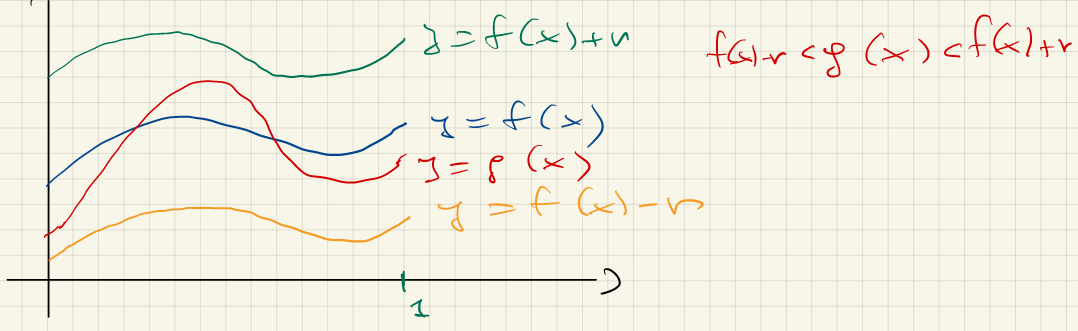 y = f(x)+r
f(x)-r < g(x) < f(x)+r
y = f(x)
y = g(x)
y = f(x)-r
1